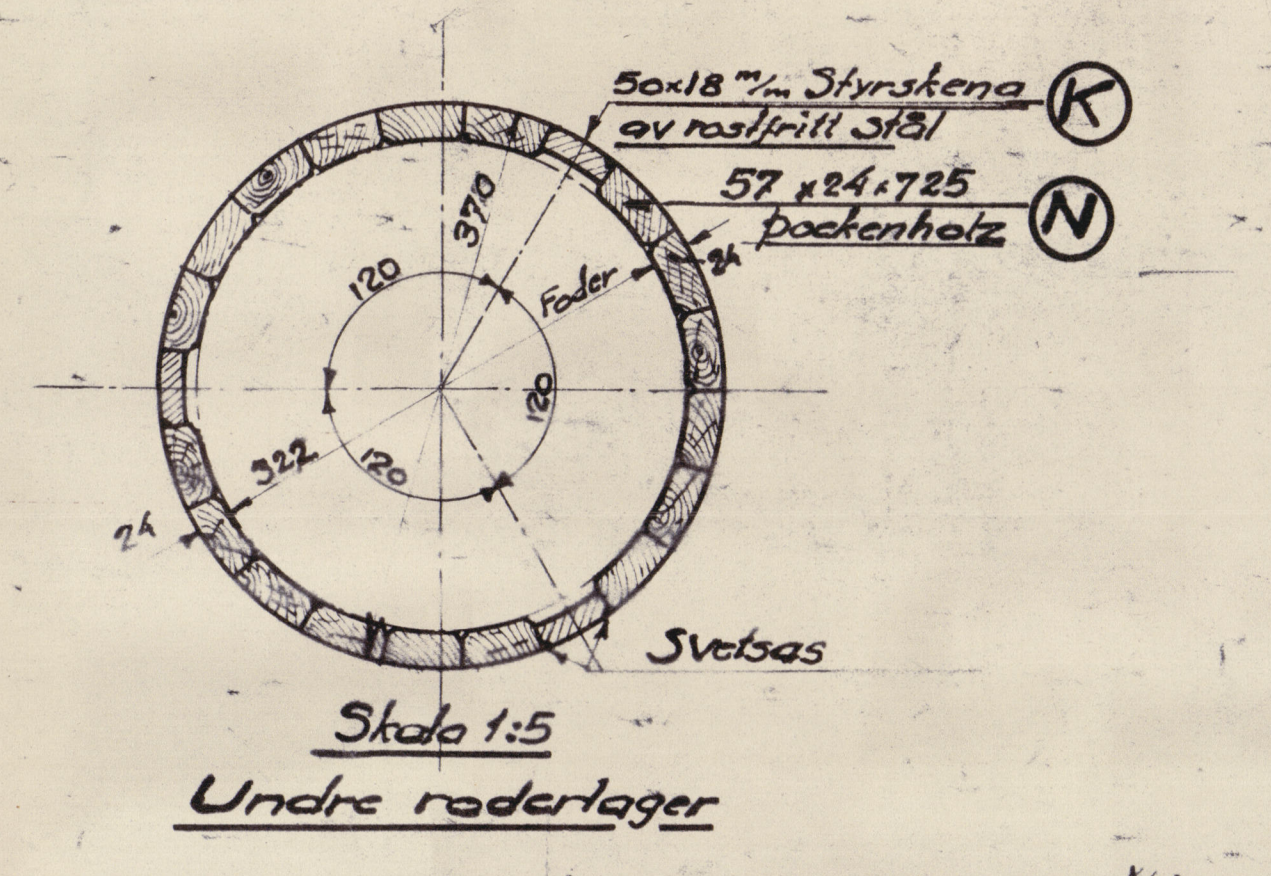 50x18 m/m Styrskena
K
av rostfritt stål
57 x24x725
N
pockenholz
24
370
120
Foder
120
322
120
24
Svetsas
Skala 1:5
Undre roderlager